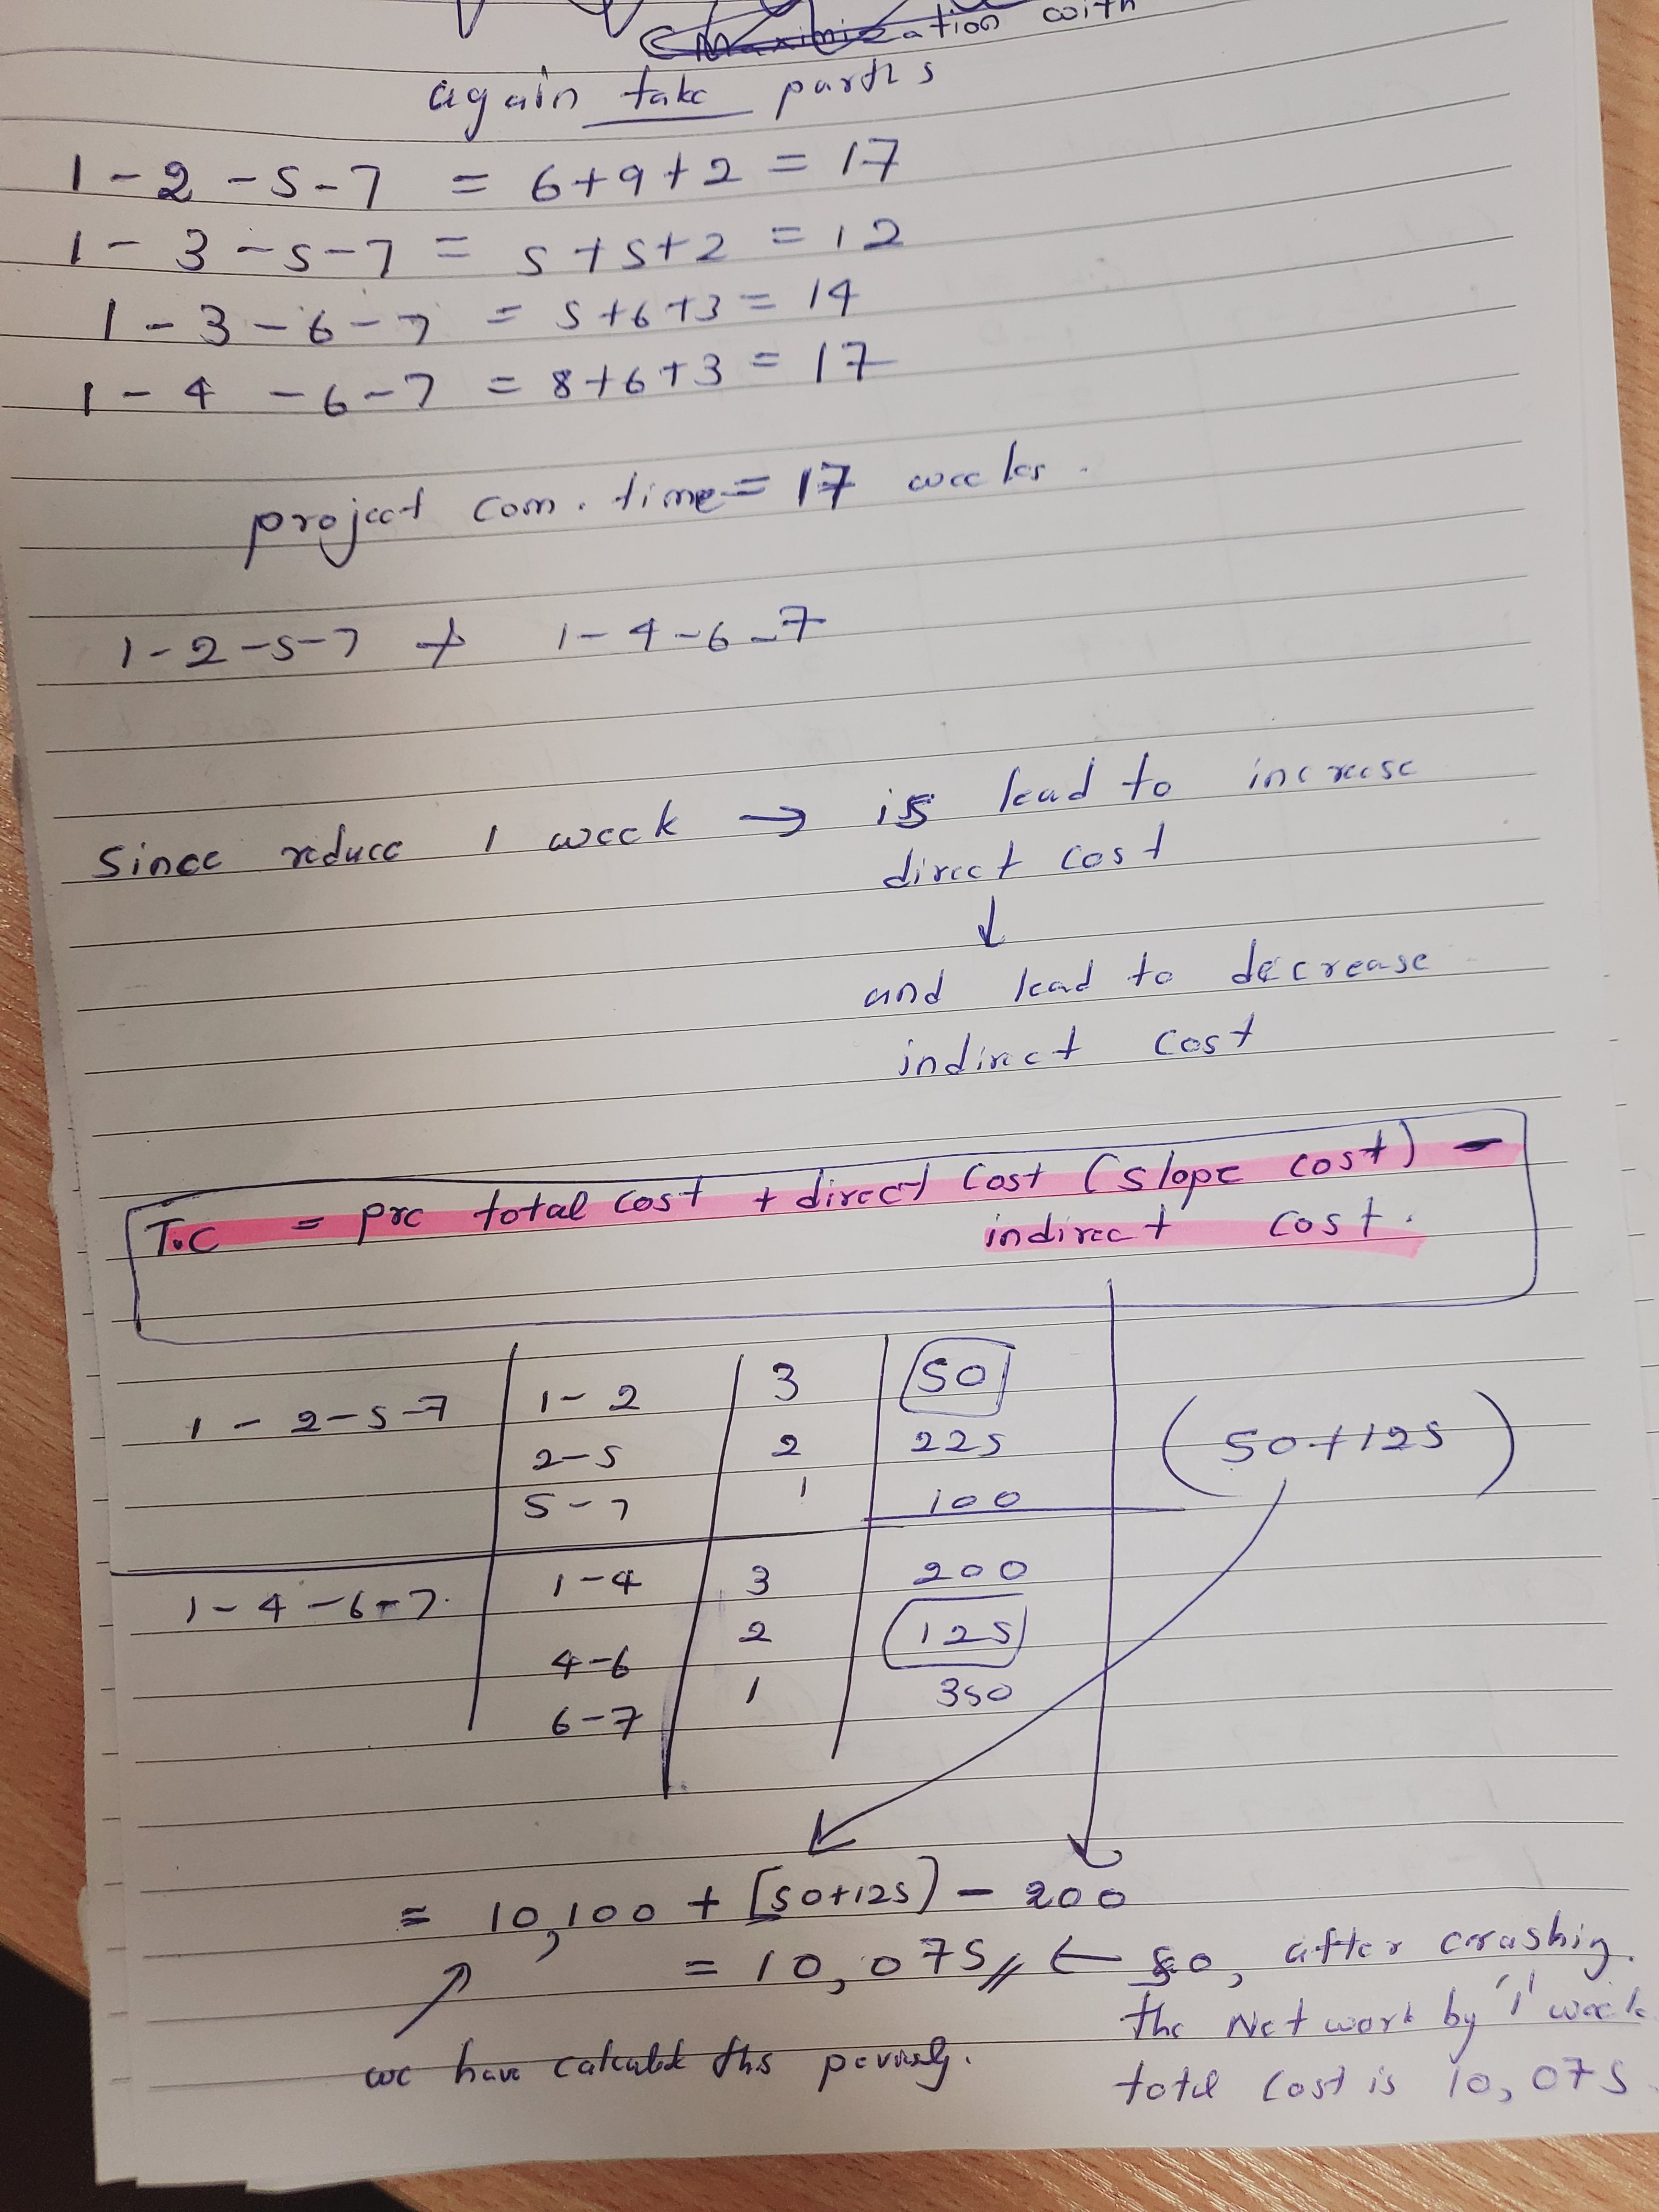 Maximization with
again take parths
1 - 2 - 5 - 7 = 6 + 9 + 2 = 17
1 - 3 - 5 - 7 = 5 + 5 + 2 = 12
1 - 3 - 6 - 7 = 5 + 6 + 3 = 14
1 - 4 - 6 - 7 = 8 + 6 + 3 = 17
project com. time = 17 weeks.
1 - 2 - 5 - 7 + 1 - 4 - 6 - 7
Since reduce 1 week → is lead to increase
direct cost
↓
and lead to decrease
indirect cost
T.C = pre total cost + direct cost (slope cost) -
indirect cost.
1 - 2 - 5 - 7 1 - 2 3 50
2 - 5 2 225 (50 + 125)
5 - 7 1 100
1 - 4 - 6 - 7. 1 - 4 3 200
4 - 6 2 125
6 - 7 1 350
= 10,100 + [50+125] - 200
= 10,075 // ← So, after crashing.
the Network by '1' week
total cost is 10,075
we have calculatd ths